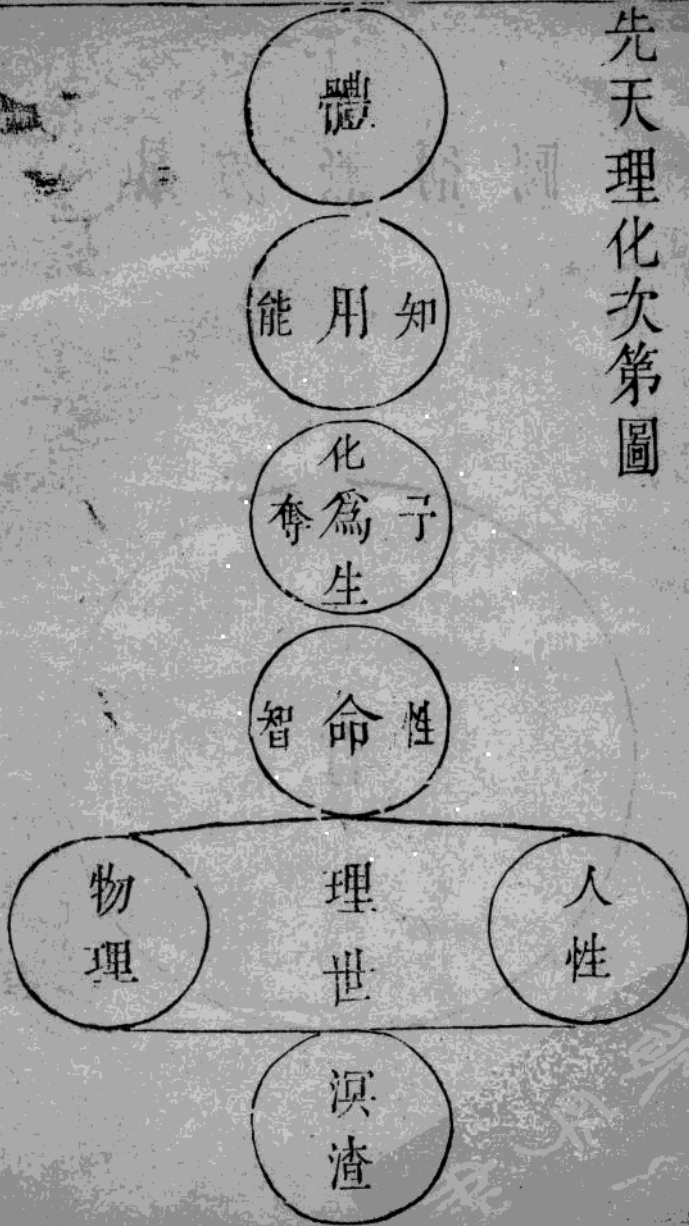 先天理化次第圖
體
知用能
化
予爲奪
生
性命智
人性
理世
物理
溟渣